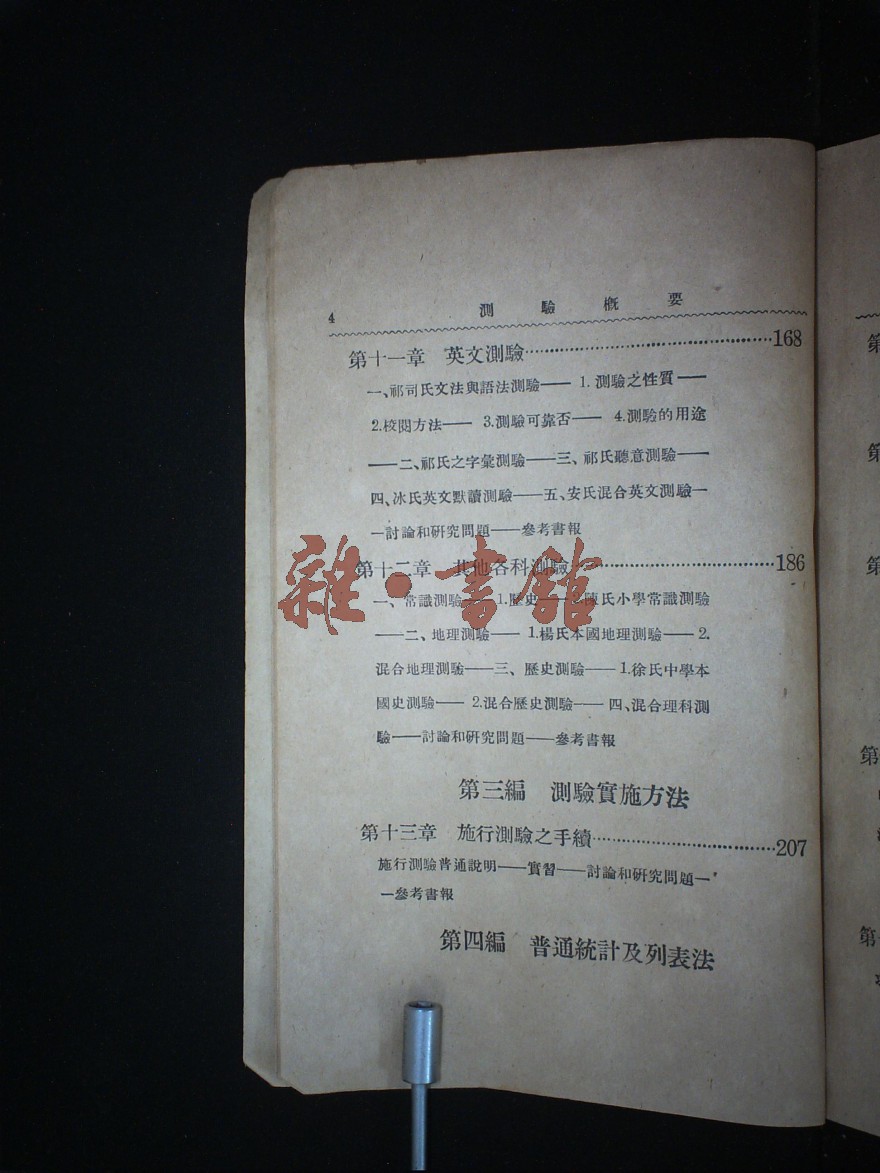 4 測驗概要
第十一章 英文測驗……………………………168
一、祁司氏文法與語法測驗—— 1. 測驗之性質——
2.校閱方法—— 3.測驗可靠否—— 4.測驗的用途
——二、祁氏之字彙測驗——三、祁氏聽意測驗——
四、冰氏英文默讀測驗——五、安氏混合英文測驗—
—討論和研究問題——參考書報
第十二章 其他各科測驗……………………………186
一、常識測驗——1.歷史——2.陳氏小學常識測驗
——二、地理測驗—— 1.楊氏本國地理測驗—— 2.
混合地理測驗——三、歷史測驗——1.徐氏中學本
國史測驗—— 2.混合歷史測驗——四、混合理科測
驗——討論和研究問題——參考書報
第三編 測驗實施方法
第十三章 施行測驗之手續……………………………207
施行測驗普通說明——實習——討論和研究問題—
—參考書報
第四編 普通統計及列表法
雜·書館
第
第
第
第
第